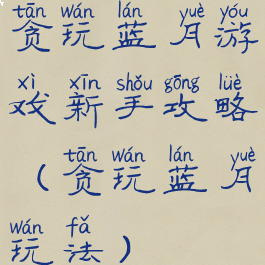 tān wán lán yuè yóu
贪玩蓝月游
xì xīn shǒu gōng lüè
戏新手攻略
tān wán lán yuè
（贪玩蓝月
wán fǎ
玩法）